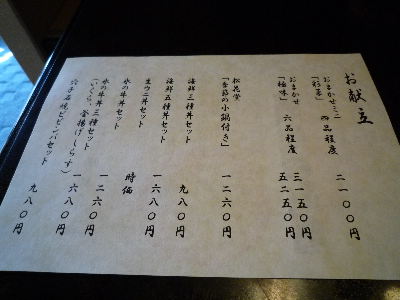 お献立
おまかせミニ
「彩喜」 四品程度 二一〇〇円
おまかせ 三一五〇円
「極味」 六品程度 五二五〇円
松花堂
「季節の小鍋付き」 一二六〇円
海鮮三種丼セット 九八〇円
海鮮五種丼セット
生ウニ丼セット 一六八〇円
水の牛丼セット 時価
水の牛丼三種セット 一二六〇円
(いくら、釜揚げしらす) 一六八〇円
穴子石焼ビビンバセット 九八〇円